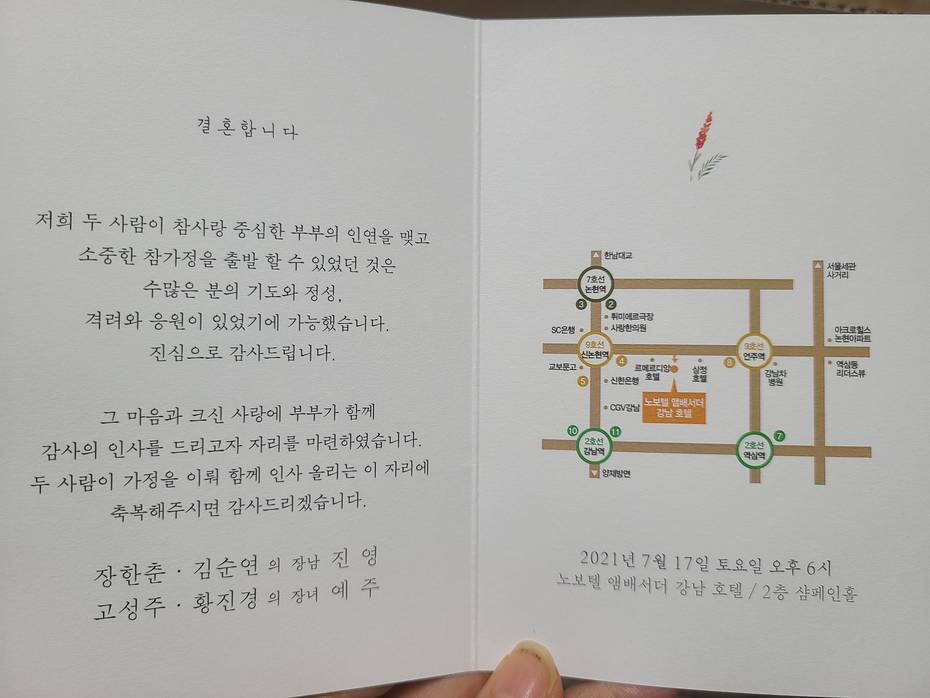 결혼합니다
저희 두 사람이 참사랑 중심한 부부의 인연을 맺고
소중한 참가정을 출발 할 수 있었던 것은
수많은 분의 기도와 정성,
격려와 응원이 있었기에 가능했습니다.
진심으로 감사드립니다.
그 마음과 크신 사랑에 부부가 함께
감사의 인사를 드리고자 자리를 마련하였습니다.
두 사람이 가정을 이뤄 함께 인사 올리는 이 자리에
축복해주시면 감사드리겠습니다.
장한춘 · 김순연 의 장남 진 영
고성주 · 황진경 의 장녀 예 주
한남대교
서울세관
사거리
7호선
논현역
3
2
뤼미에르극장
사랑한의원
SC은행
9호선
신논현역
4
9호선
언주역
8
아크로힐스
논현아파트
교보문고
5
신한은행
르메르디앙
호텔
삼정
호텔
강남차
병원
역삼동
리더스뷰
노보텔 앰배서더
강남 호텔
CGV강남
10
11
2호선
강남역
7
2호선
역삼역
양재방면
2021년 7월 17일 토요일 오후 6시
노보텔 앰배서더 강남 호텔 / 2층 샴페인홀